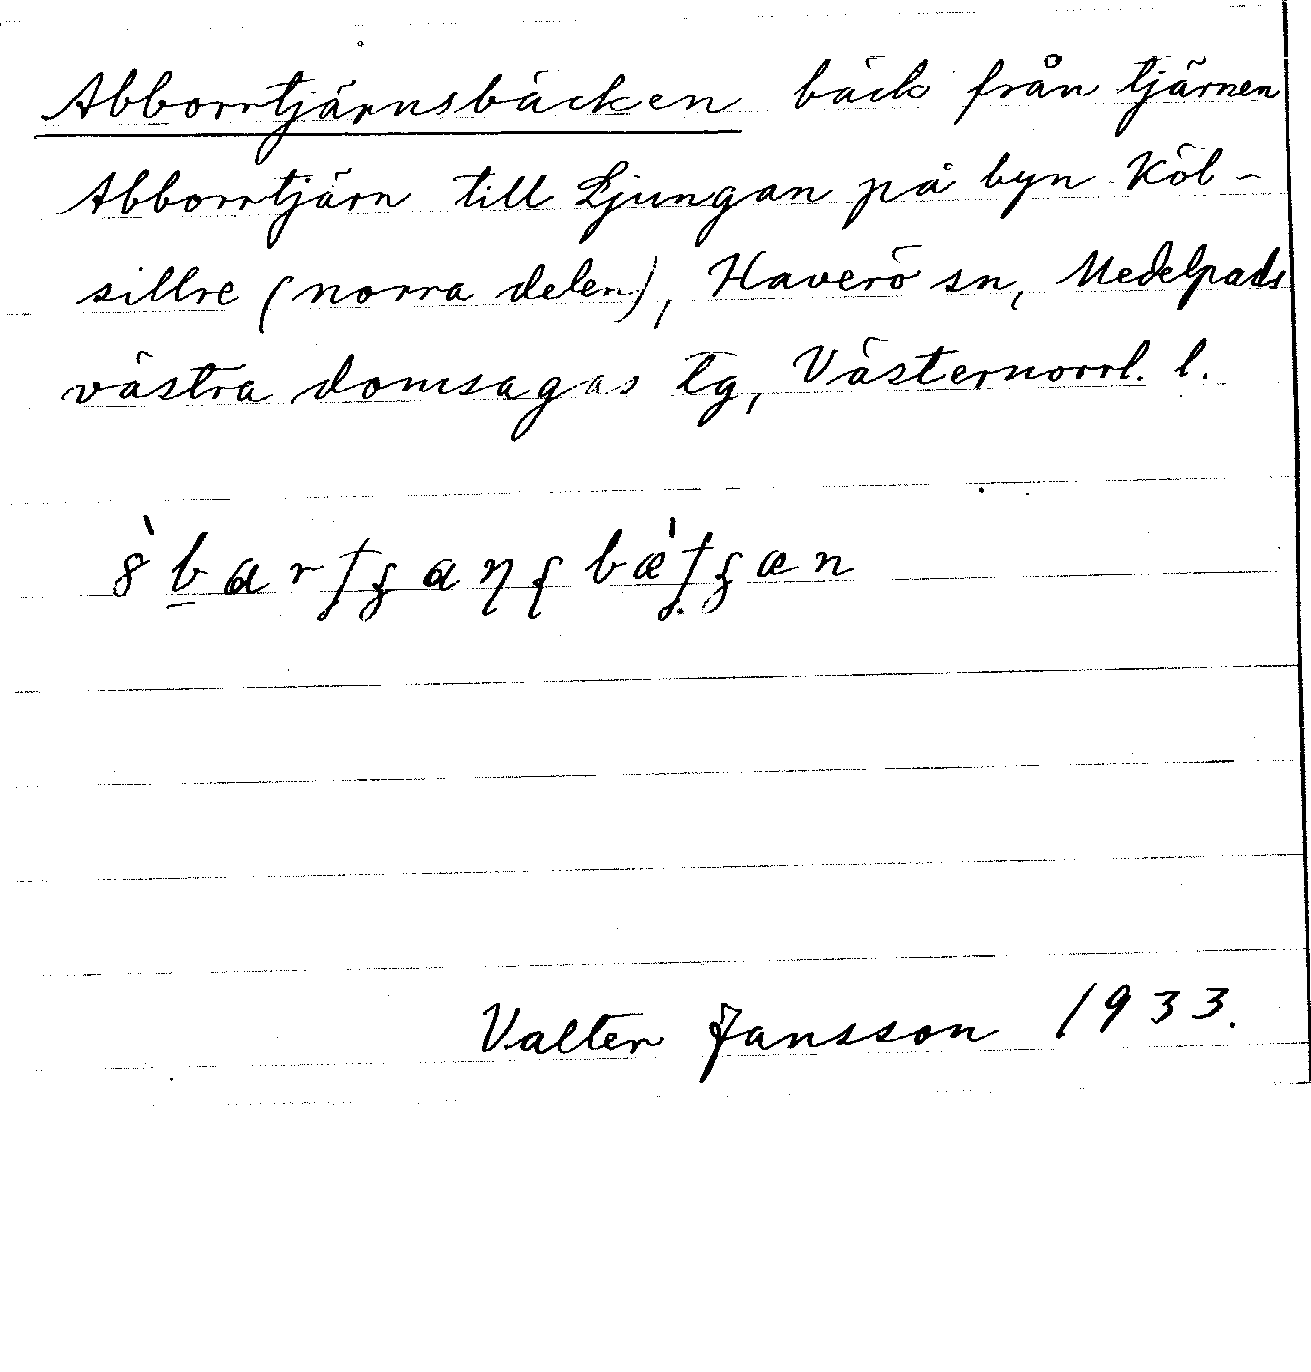 Abborrtjärnsbäcken bäck från tjärnen
Abborrtjärn till Ljungan på byn Köl-
sillre (norra delen), Haverö sn, Medelpads
västra domsagas tg, Västernorrl. l.
Valter Jansson 1933.